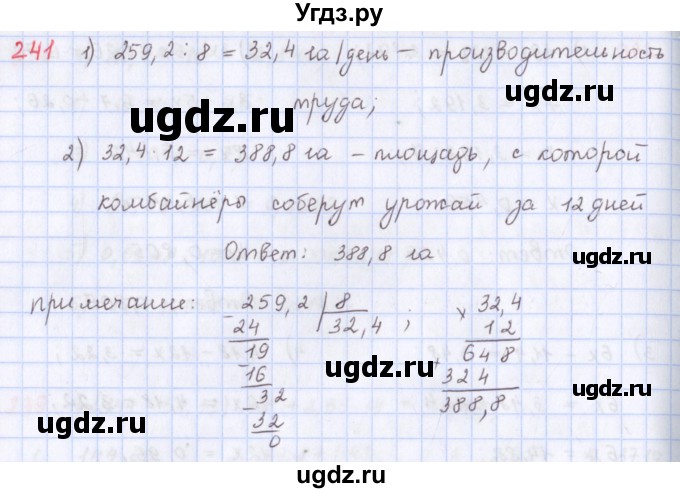 Угдз.ру
241 1) 259,2 : 8 = 32,4 га/день – производительность
труда;
ugdz.ru ugdz.ru
2) 32,4 · 12 = 388,8 га – площадь, с которой
комбайнёры соберут урожай за 12 дней
Ответ: 388,8 га
ugdz.ru ugdz.ru
примечание: 259,2 | 8 ; × 32,4
24 32,4 12
19 648
16 + 324
32 388,8
32
0
ugdz.ru ugdz.ru
ugdz.ru